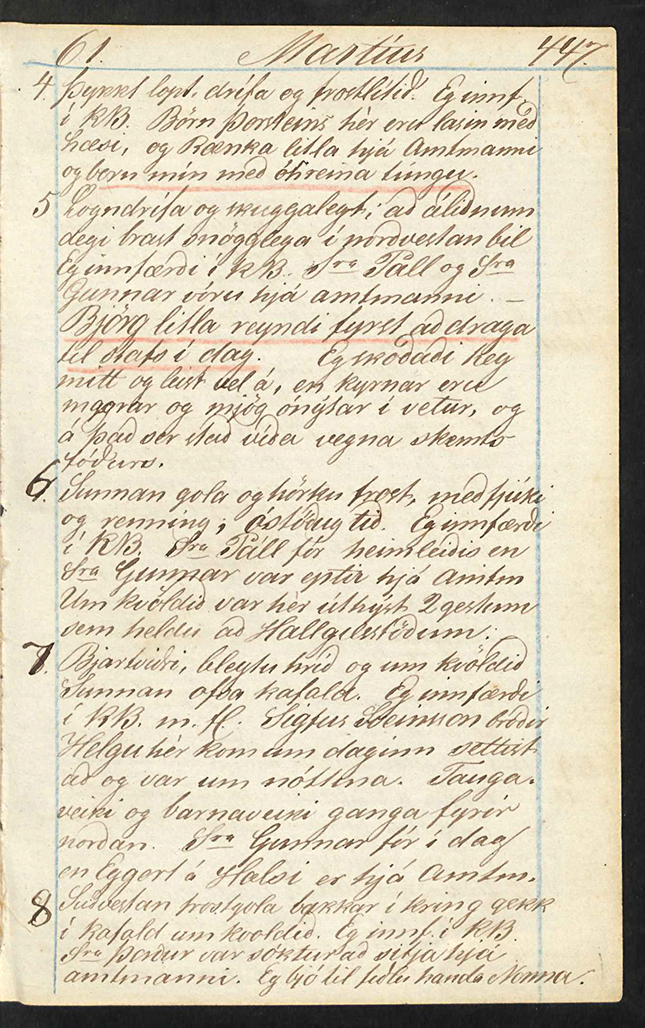 61. Martíus 447.
4. Þykkt lopt. drífa og frostlítið. Eg innf.
í KB. Börn Þorsteins hér eru lasin með
hæsi, og Rænka litla hjá Amtmanni
og börn mín með óhreina túngu.
5 Logndrífa og skuggalegt; að áliðnum
degi brast snögglega í norðvestan bil
Eg innfærði í KB. Sra Páll og Sra
Gunnar vóru hjá amtmanni. –
Björg litla reyndi fyrst að draga
til stafs í dag. Eg skoðaði hey
mitt og leist vel á, en kyrnar eru
magrar og mjög ónýtar í vetur, og
á það sér stað víða vegna skemds
fóðurs.
6. Sunnan gola og hörku frost, með fjúki
og renning; óstöðug tíð. Eg innfærði
í KB. Sra Páll fór heimleiðis en
Sra Gunnar var eptir hjá Amtm
Um kvöldið var hér úthýst 2 gestum
sem heldu að Hallgilsstöðum.
7. Bjartviðri, bleytu hríð og um kvöldið
Sunnan ofsa kafald. Eg innfærði
í KB. m. fl. Sigfus Steinsson bróðir
Helgu hér kom um daginn settist
að og var um nóttina. Tauga-
veiki og barnaveiki ganga fyrir
norðan. Sra Gunnar fór í dag
en Eggert á Halsi er hjá Amtm.
8 Suðvestan frostgola bakkar í kring gekk
í kafald um kvoldið. Eg innf. í KB.
Sra Þórður var sóktur að sitja hjá
amtmanni. Eg bjó til fiðlu handa Nonna.